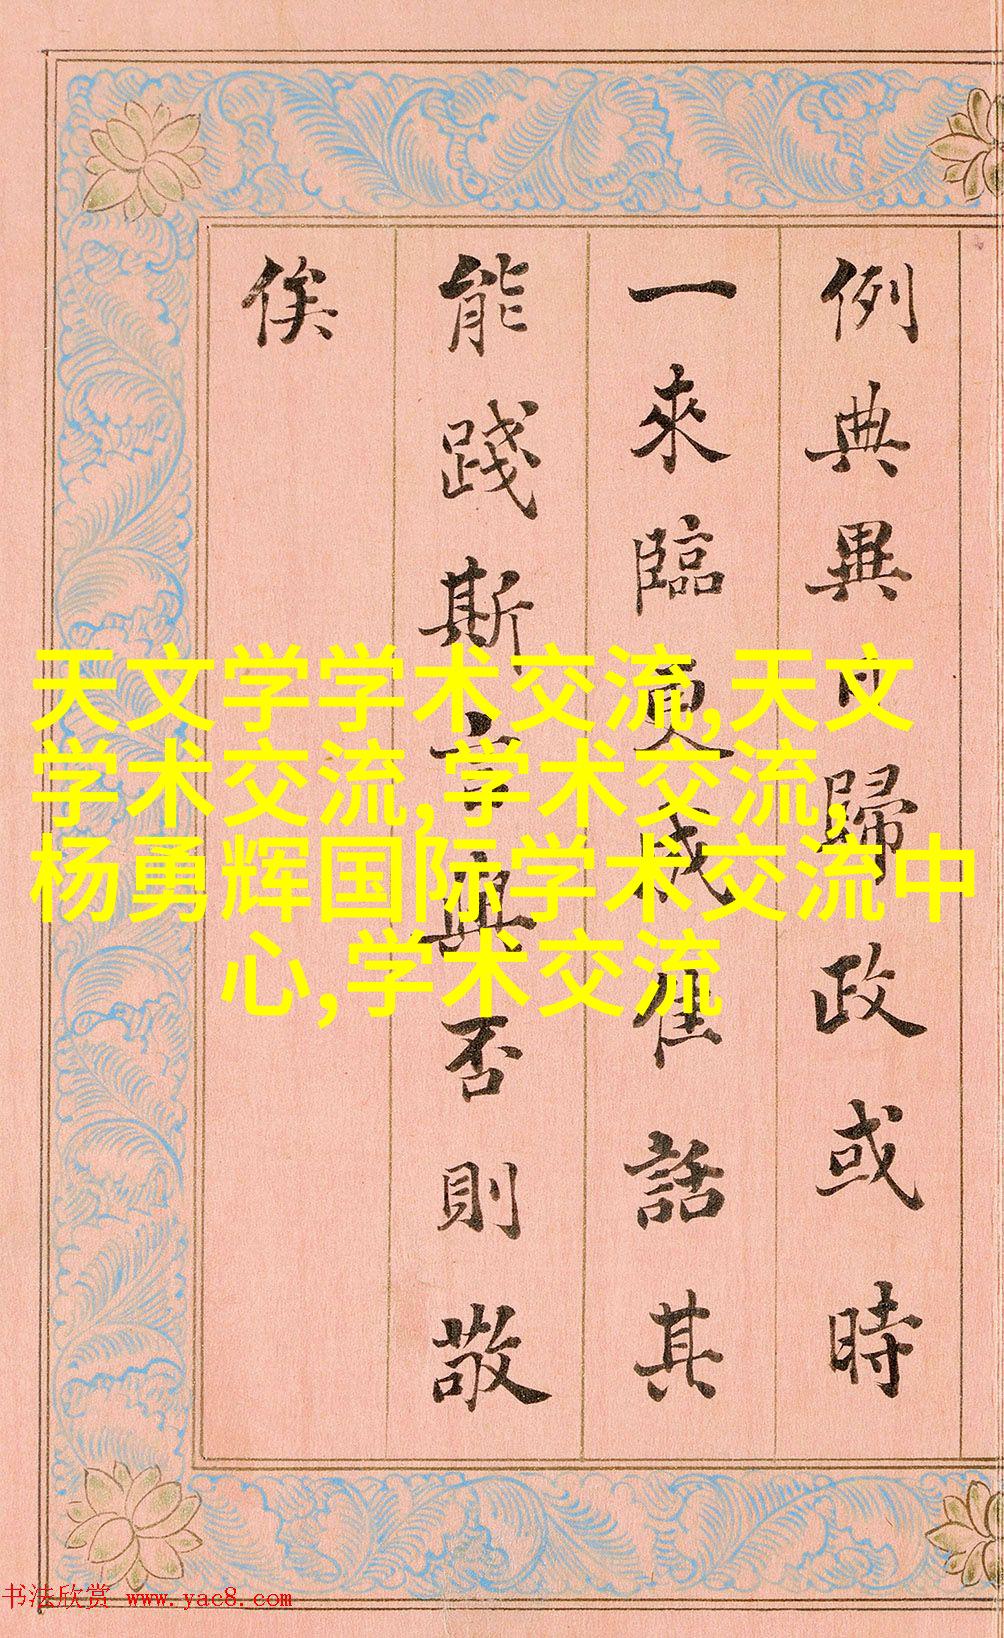 天文学学术交流,天文
学术交流,学术交流,
杨勇辉国际学术交流中
心,学术交流
例典異 歸政或時
一來臨更 話其
能踐斯言與否則敬
俟
书法欣赏 www.yac8.com